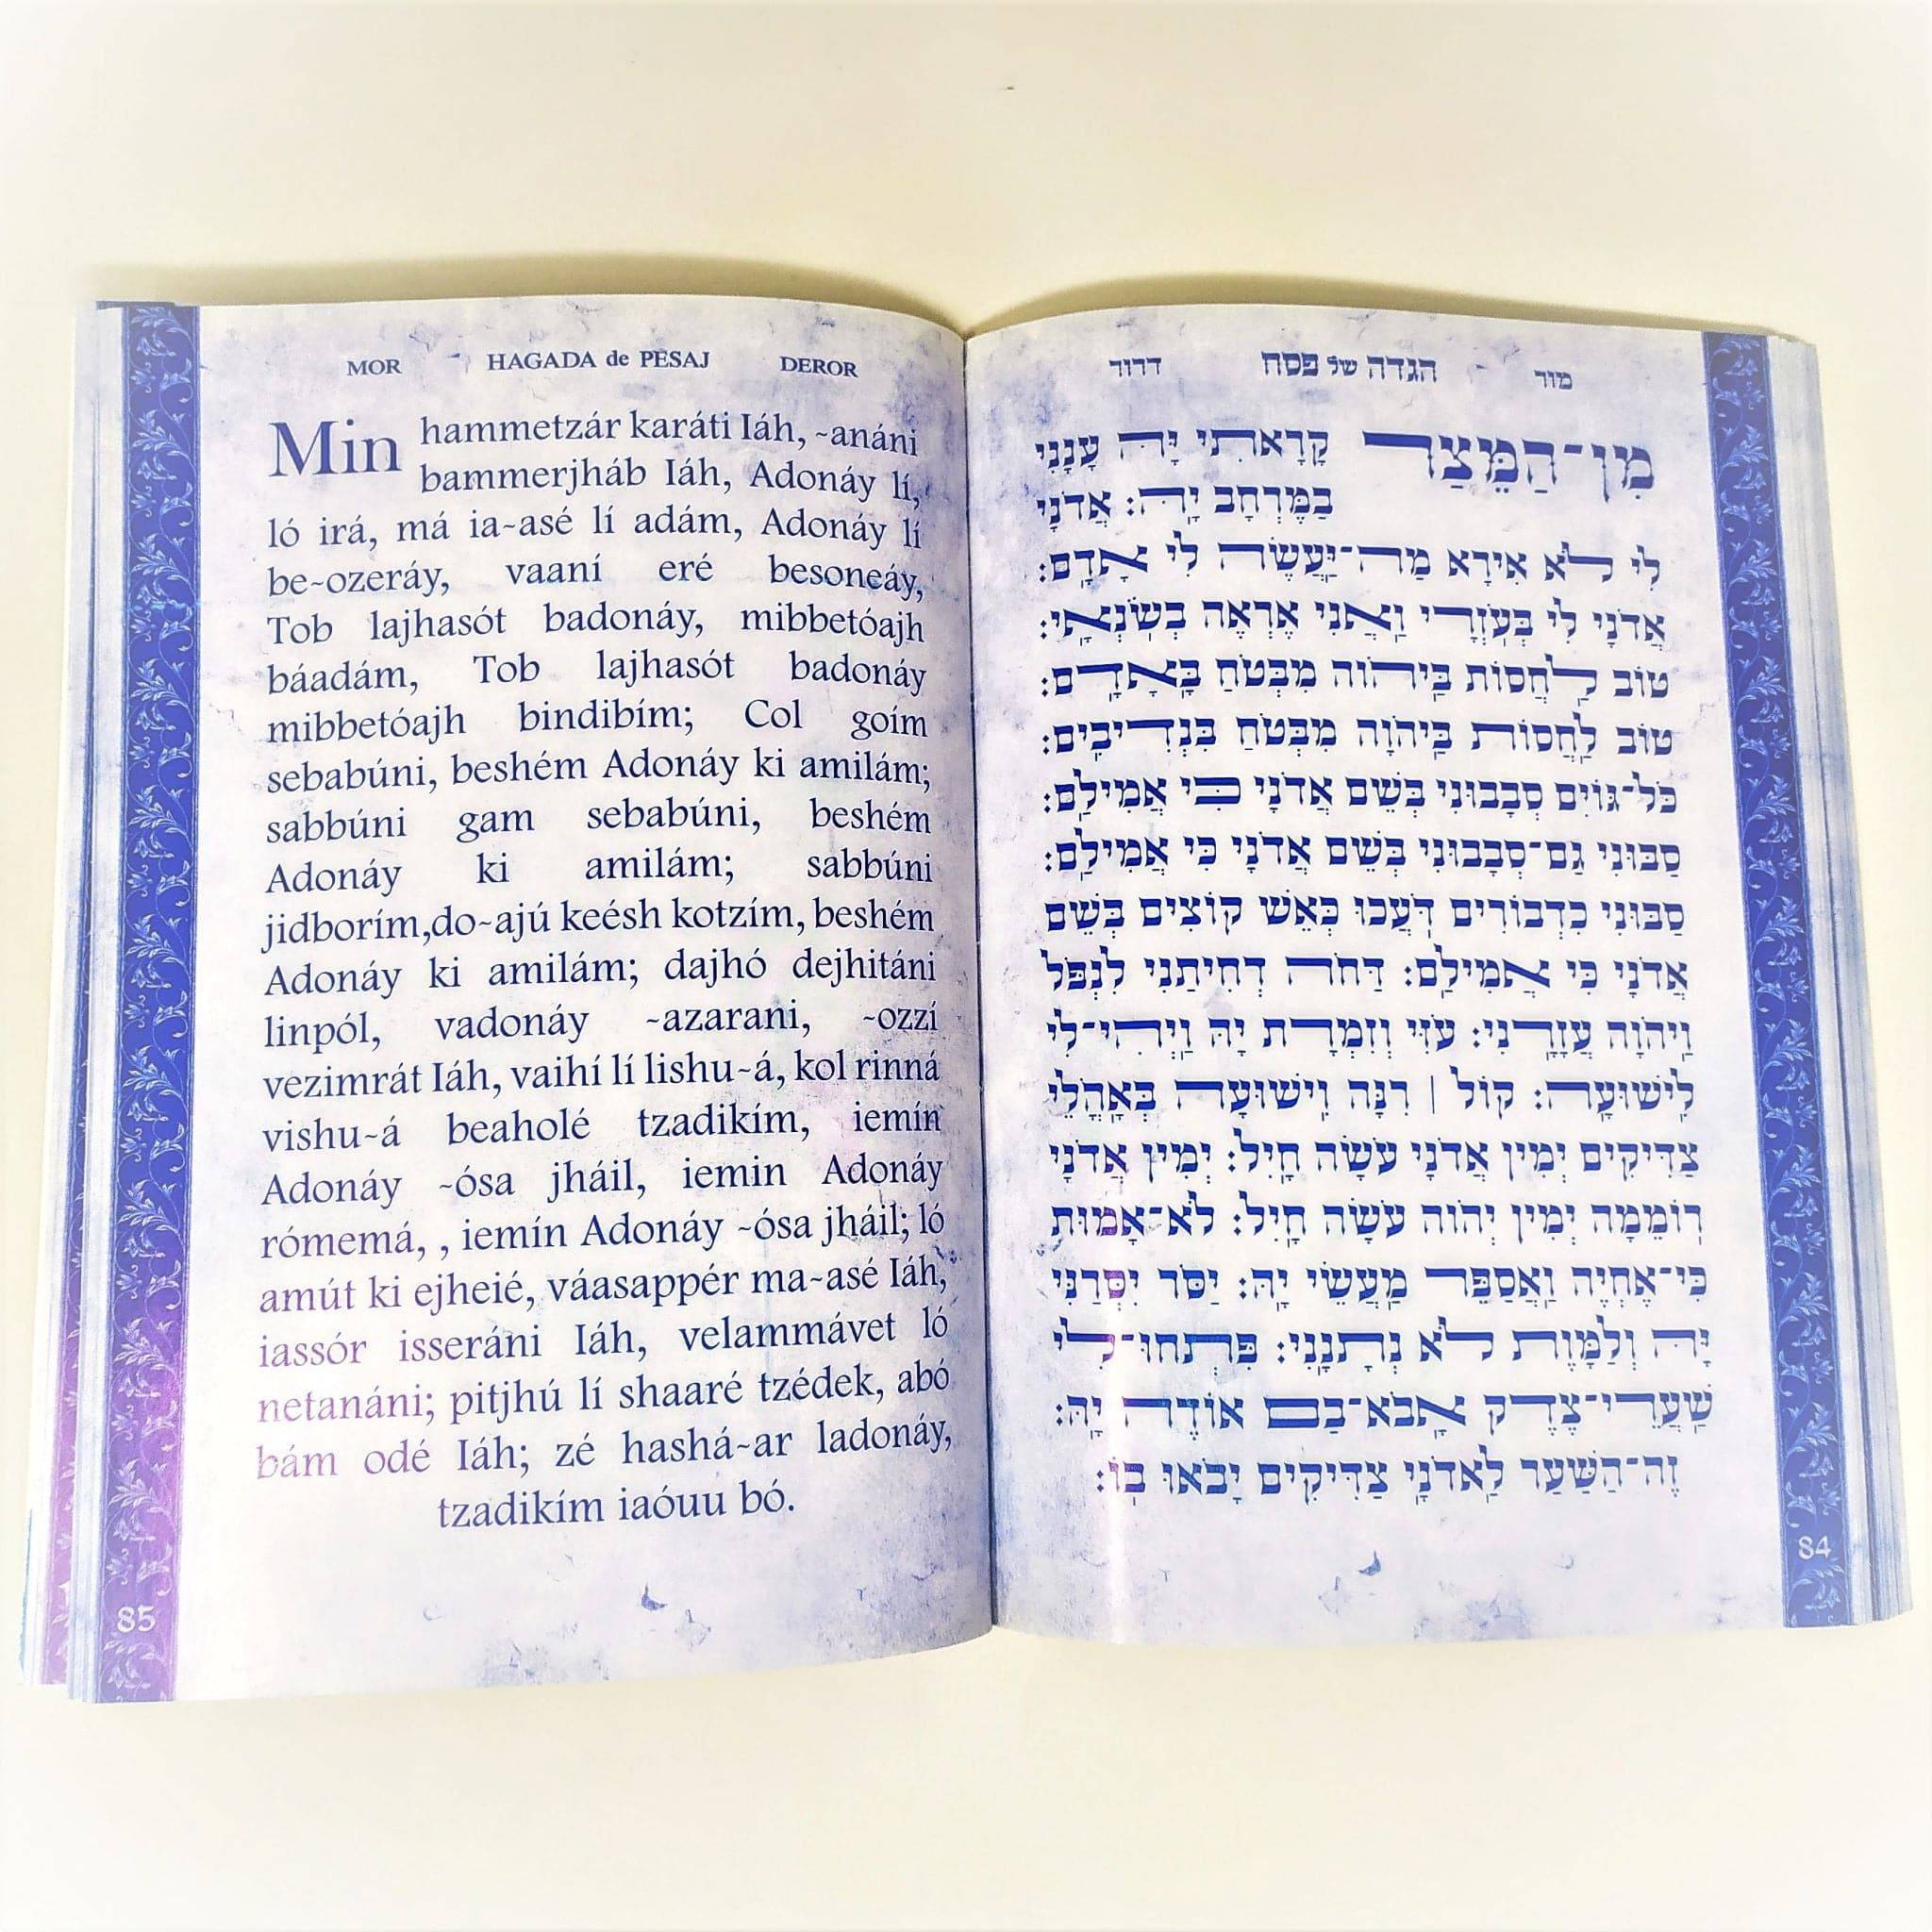 MOR HAGADA de PESAJ DEROR
Min hammetzár karáti Iáh, ~anáni
bammerjháb Iáh, Adonáy lí,
ló irá, má ia~asé lí adám, Adonáy lí
be~ozeráy, vaaní eré besoneáy,
Tob lajhasót badonáy, mibbetóajh
báadám, Tob lajhasót badonáy
mibbetóajh bindibím; Col goím
sebabúni, beshém Adonáy ki amilám;
sabbúni gam sebabúni, beshém
Adonáy ki amilám; sabbúni
jidborím,do~ajú keésh kotzím, beshém
Adonáy ki amilám; dajhó dejhitáni
linpól, vadonáy ~azarani, ~ozzí
vezimrát Iáh, vaihí lí lishu~á, kol rinná
vishu~á beaholé tzadikím, iemín
Adonáy ~ósa jháil, iemin Adonáy
rómemá, , iemín Adonáy ~ósa jháil; ló
amút ki ejheié, váasappér ma~asé Iáh,
iassór isseráni Iáh, velammávet ló
netanáni; pitjhú lí shaaré tzédek, abó
bám odé Iáh; zé hashá~ar ladonáy,
tzadikím iaóuu bó.
85
מור הגדה של פסח דרור
מִן־הַמֵּצַר קָרָאתִי יָּהּ עָנָנִי
בַמֶּרְחָב יָהּ: אֲדֹנָי
לִי לֹא אִירָא מַה־יַּעֲשֶׂה לִי אָדָם:
אֲדֹנָי לִי בְּעֹזְרָי וַאֲנִי אֶרְאֶה בְשֹׂנְאָי:
טוֹב לַחֲסוֹת בַּיהֹוה מִבְּטֹחַ בָּאָדָם:
טוֹב לַחֲסוֹת בַּיהֹוָה מִבְּטֹחַ בִּנְדִיבִים:
כָּל־גּוֹיִם סְבָבוּנִי בְּשֵׁם אֲדֹנָי כִּי אֲמִילַם:
סַבּוּנִי גַם־סְבָבוּנִי בְּשֵׁם אֲדֹנָי כִּי אֲמִילַם:
סַבּוּנִי כִדְבוֹרִים דֹּעֲכוּ כְּאֵשׁ קוֹצִים בְּשֵׁם
אֲדֹנָי כִּי אֲמִילַם: דַּחֹה דְחִיתַנִי לִנְפֹּל
וַיהֹוָה עֲזָרָנִי: עָזִּי וְזִמְרָת יָהּ וַיְהִי־לִי
לִישׁוּעָה: קוֹל | רִנָּה וִישׁוּעָה בְּאָהֳלֵי
צַדִּיקִים יְמִין אֲדֹנָי עֹשָׂה חָיִל: יְמִין אֲדֹנָי
רוֹמֵמָה יְמִין יְהֹוה עֹשָׂה חָיִל: לֹא־אָמוּת
כִּי־אֶחְיֶה וַאֲסַפֵּר מַעֲשֵׂי יָהּ: יַסֹּר יִסְּרַנִּי
יָּהּ וְלַמָּוֶת לֹא נְתָנָנִי: פִּתְחוּ־לִי
שַׁעֲרֵי־צֶדֶק אָבֹא־בָם אוֹדֶה יָהּ:
זֶה־הַשַּׁעַר לַאדֹנָי צַדִּיקִים יָבֹאוּ בוֹ:
84